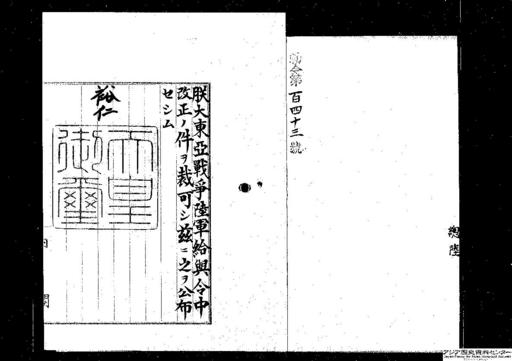 勅令第百四十三號
總陸
朕大東亞戰爭陸軍給與令中
改正ノ件ヲ裁可シ茲ニ之ヲ公布
セシム
裕仁
天皇
御璽
内閣
アジア歴史資料センター